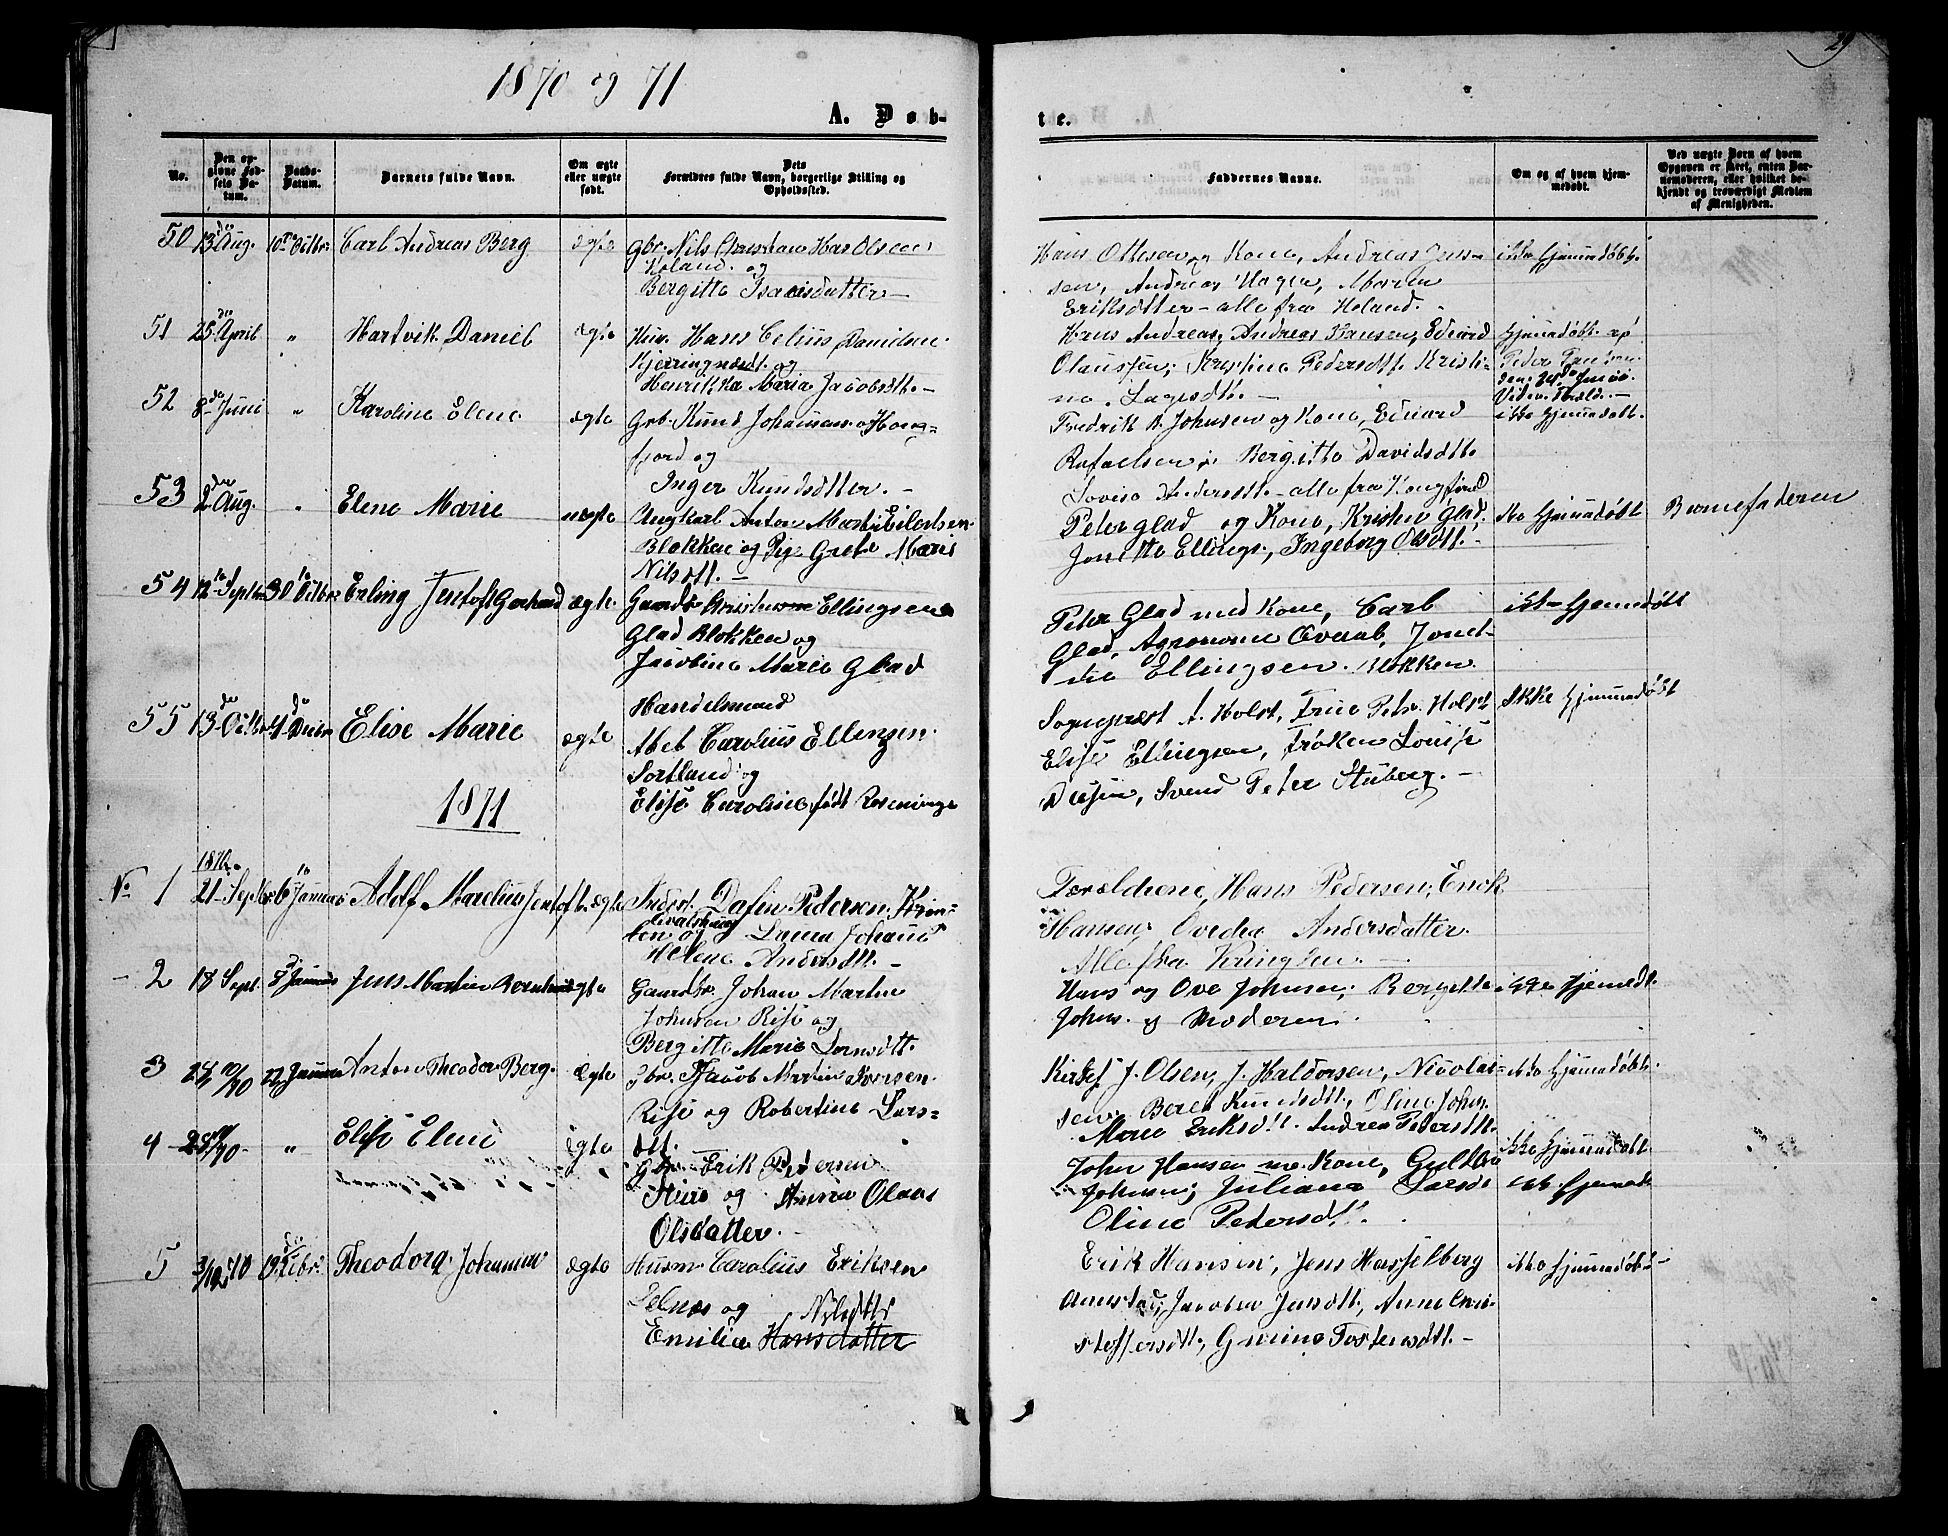 29
1870 og 71
A. Døb-
te.
No.
Den op-
givne Fød-
sels Da-
tum.
Daabs-
Datum.
Barnets fulde Navn.
Om ægte
eller uægte
født.
Dets
Forældres fulde Navn, borgerlige Stilling og
Opholdssted.
Faddernes Navne.
Om og af hvem hjem-
medøbt.
Ved uægte Børn af hvem
Opgaven er skeet, enten Bar-
nemoderen, eller hvilket be-
kjendt og troværdigt Medlem
af Menigheden.
50 13de Aug. 10de Octbr. Carl Andreas Berg ægte Gbr. Nils Christian Olsen
Holand og
Bergitte Isaksdatter
Hans Ottesen og Kone, Andreas Jens-
sen, Andreas Hagen, Maren
Eriksdatter alle fra Holand.
ikke hjemmedøbt.
51 25de April " Hartvik Daniel ægte Huv. Hans Celius Danielsen
Kjerringnesdt. og
Henrikke Maria Jacobsdt.
Hans Andreas, Andreas Hansen, Edvard
Olaussen, Kristine Pedersdt. Kristi-
ne Lagesdt.
hjemmedøbt af
Peder
den 24de Juni
52 8de Juni " Karoline Elene ægte Gbr. Knud Johannesen Hog-
fjord og
Inger Knudsdtter.
Fredrik A. Johnsen og Kone, Edvard
Rafaelsen, Bergitte Davidsdt.
Lovise Andersdt. alle fra Hogfjord
ikke hjemmedøbt.
53 2den Aug. " Elene Marie uægte Ungkarl Anton Martin Eilertsen
Blokken og Pige Grete Marie
Nilsdtt.
Peter Glad og Kone, Kristen Glad,
Jonette Ellings., Ingeborg Olsdtt.
ikke hjemmedøbt
Barnefaderen
54 12te Septbr 30te Octbr Erling Jentoft Gerhard ægte. Gaardbr. Kristian Ellingsen
Glad Blokken og
Jacobine Marie Glad
Peter Glad med Kone, Carl
Glad, Agronome Overaa, Jonet-
te Ellingsen Blokken
ikke hjemmedøbt
55 13de Octbr 4de Decbr Elise Marie ægte Handelsmand
Abel Carolius Ellingsen
Sortland og
Elise Caroline født Rosenvinge
Sogneprest A. Holst, Frue Petr. Holst
Elise Ellingsen, Frøken Louise
Dreyer, Svend Peter Stuberg.
Ikke hjemmedøbt
1871
No. 1 1870 21 Septbr 6te Januar Adolf Marelius Jentoft ægte Inderst. Dafin Pedersen Kring-
len og Laura Johanne
Helene Andersdtt.
Forældrene, Hans Pedersen, Enok
Hansen, Ovedia Andersdatter.
Alle fra Kringlen.
2 18 Sept. 8de Januar Jens Martin Bernhard ægte Gaardbr. Johan Martin
Johnsen Risø og
Bergitte Marie Larsdtt.
Hans og Ove Johnsen, Bergitte
Johns. og Moderen.
ikke hjemedt.
3 28/10 70 22 Januar Anton Theodor Berg. ægte Gbr. Jacob Martin Iversen
Risø og Robertine Lars-
dtt.
J. Olsen, J. Haldorsen, Nicolai-
sen, Beret Knudsdtt., Oline Johns.
Marie Eriksdtt. Andrea Pedersdtt.
ikke hjemmedøbt.
4 28/11 70 " Elise Elene ægte Gbr. Erik Pedersen
Stiro og Anna Olava
Olsdatter.
John Hansen me. Kone,
Johnsen, Juliane Larsdt
Oline Pedersdt.
ikke hjemmedøbt
ikk. hjemmed.
5 3/12 70 19de Febr. Theodora Johanna ægte Husm. Carolius Eriksen
Selnes og Nilsdtter
Emilie Hansdatter
Erik Hansen, Jens Hasselberg
Jacobea Jensdtt., Anne Chri-
stoffersdtt., Gurine Torstensdtt.
ikke hjemmedøbt